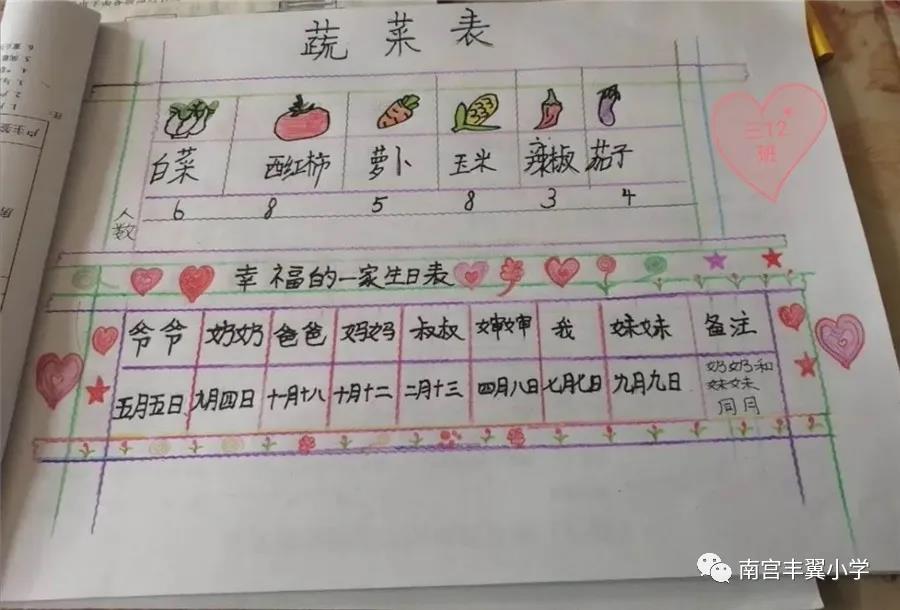 蔬菜表
三12班
白菜 西红柿 萝卜 玉米 辣椒 茄子
人数 6 8 5 8 3 4
幸福的一家生日表
爷爷 奶奶 爸爸 妈妈 叔叔 婶婶 我 妹妹 备注
五月五日 九月四日 十月十八 十月十二 二月十三 四月八日 七月七日 九月九日 奶奶和
妹妹
同月
南宫丰翼小学